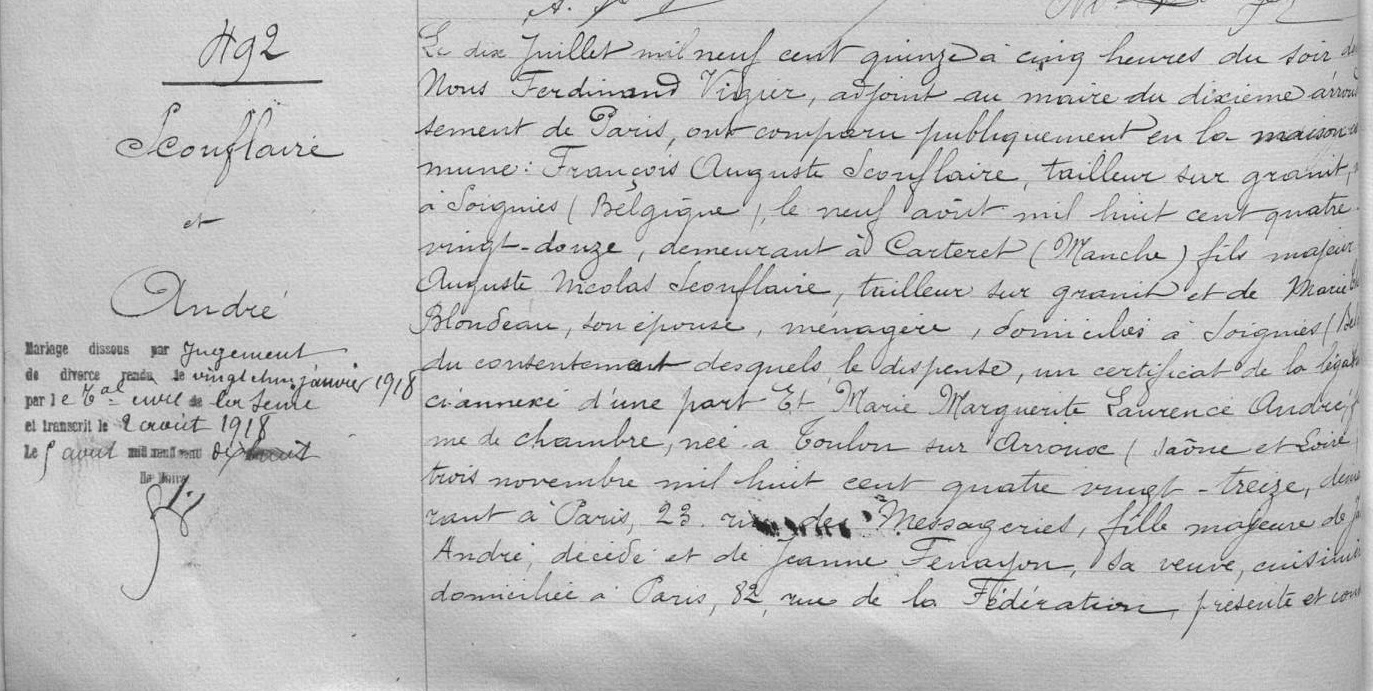 492
Sconflaire
et
André
Mariage dissous par Jugement
de divorce rendu le vingt cinq janvier 1918
par le Tal civil de la Seine
et transcrit le 2 août 1918
Le 5 août mil neuf cent dix huit
Le Maire
Le dix Juillet mil neuf cent quinze à cinq heures du soir
Nous Ferdinand Vigier, adjoint au maire du dixième arron
sement de Paris, ont comparu publiquement en la maison
mune: François Auguste Sconflaire, tailleur sur granit,
à Soignies (Belgique), le neuf août mil huit cent quatre
vingt-douze, demeurant à Carteret (Manche) fils majeur
Auguste Nicolas Sconflaire, tailleur sur granit et de Marie
Blondeau, son épouse, ménagère, domiciliés à Soignies (Bel
du consentement desquels le dispense, un certificat de la légat
ci annexé d'une part Et Marie Marguerite Laurence André, f
me de chambre, née à Toulon sur Arroux (Saône et Loire)
trois novembre mil huit cent quatre vingt-treize, demeu
rant à Paris, 23 rue des Messageries, fille majeure de
André, décédé et de Jeanne Fenayon, sa veuve, cuisiniè
domiciliée à Paris, 82, rue de la Fédération, présente et cons